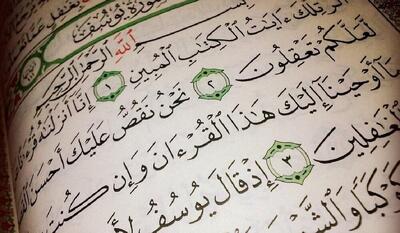 بِغَٰفِلٍ عَمَّا
سُورَةُ يُوسُفَ
اللَّهِ الرَّحْمَٰنِ الرَّحِيمِ
الٓر تِلْكَ ءَايَٰتُ الْكِتَٰبِ الْمُبِينِ ١ إِنَّآ أَنزَلْنَٰهُ
لَّعَلَّكُمْ تَعْقِلُونَ ٢ نَحْنُ نَقُصُّ عَلَيْكَ أَحْسَنَ
مَآ أَوْحَيْنَآ إِلَيْكَ هَٰذَا الْقُرْءَانَ وَإِن كُنتَ
الْغَٰفِلِينَ ٣ إِذْ قَالَ يُوسُفُ
كَوْكَبًا وَالشَّمْسَ